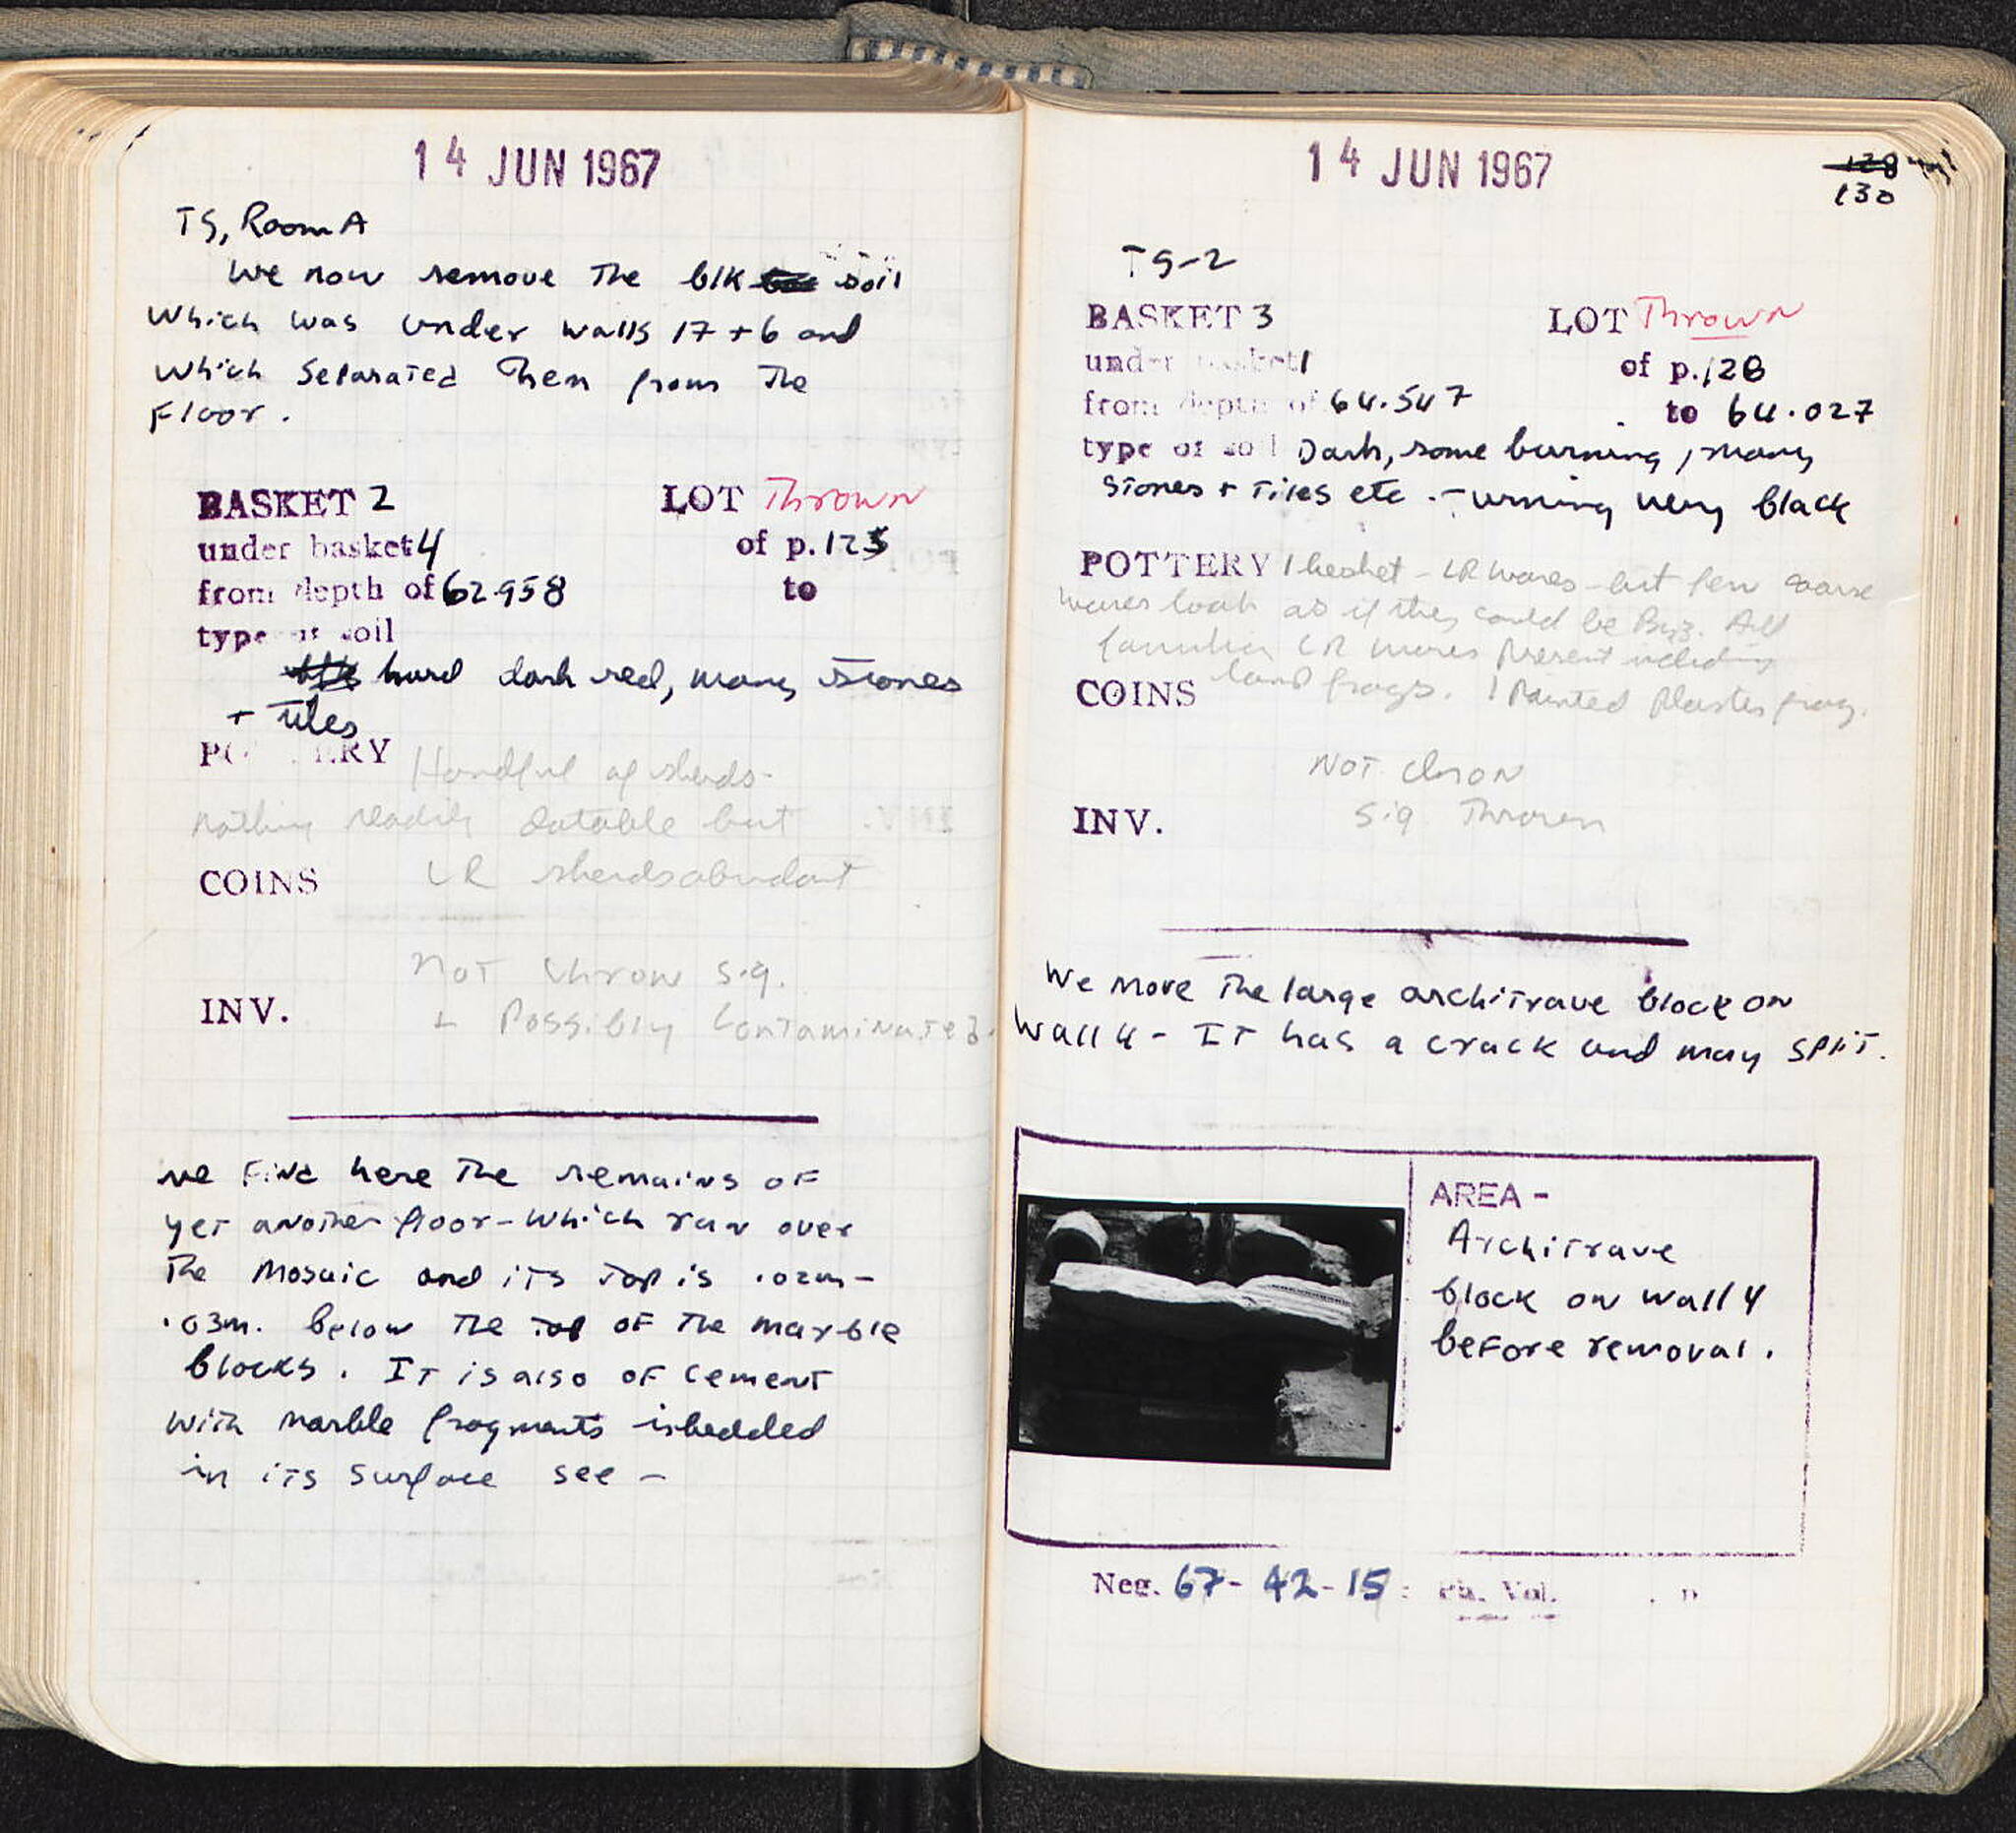 14 JUN 1967
TS, Room A
We now remove the blk soil
which was under walls 17 + 6 and
which separated them from the
Floor.
BASKET 2 LOT Thrown
under basket 4 of p. 125
from depth of 62.958 to
type of soil
hard dark red, many stones
+ tiles
POTTERY Handful of sherds-
nothing readily datable but
COINS LR sherds abundant
Not chron sig.
INV. + Possibly Contaminated.
we find here the remains of
yet another floor - which ran over
the mosaic and its top is .02m-
.03m. below the top of the marble
blocks. It is also of cement
with marble fragments imbedded
in its surface see -
14 JUN 1967
128
130
TS-2
BASKET 3 LOT Thrown
under basket 1 of p. 128
from depth of 64.547 to 64.027
type of soil Dark, some burning, many
stones + tiles etc. - turning very black
POTTERY 1 basket - LR wares - but few coarse
wares look as if they could be Byz. All
familiar LR wares present including
COINS lamp frags. 1 Painted plaster frag.
Not chron
INV. sig Thrown
We move the large architrave block on
wall 4 - It has a crack and may split.
AREA -
Architrave
block on wall 4
before removal.
Neg. 67- 42-15 : Ph. Vol. . p